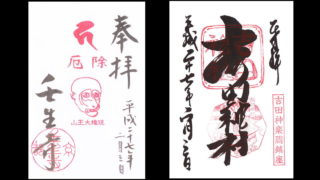 奉拝
厄除
山王大権現
平成二十七年
二月三日
壬生寺
正参拝
吉田神社
平成二十七年二月三日
吉田神楽岡鎮座